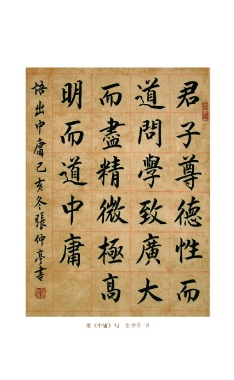 君子尊德性而
道問學致廣大
而盡精微極高
明而道中庸
語出中庸己亥冬張仲亭書
录《中庸》句 张仲亭 书